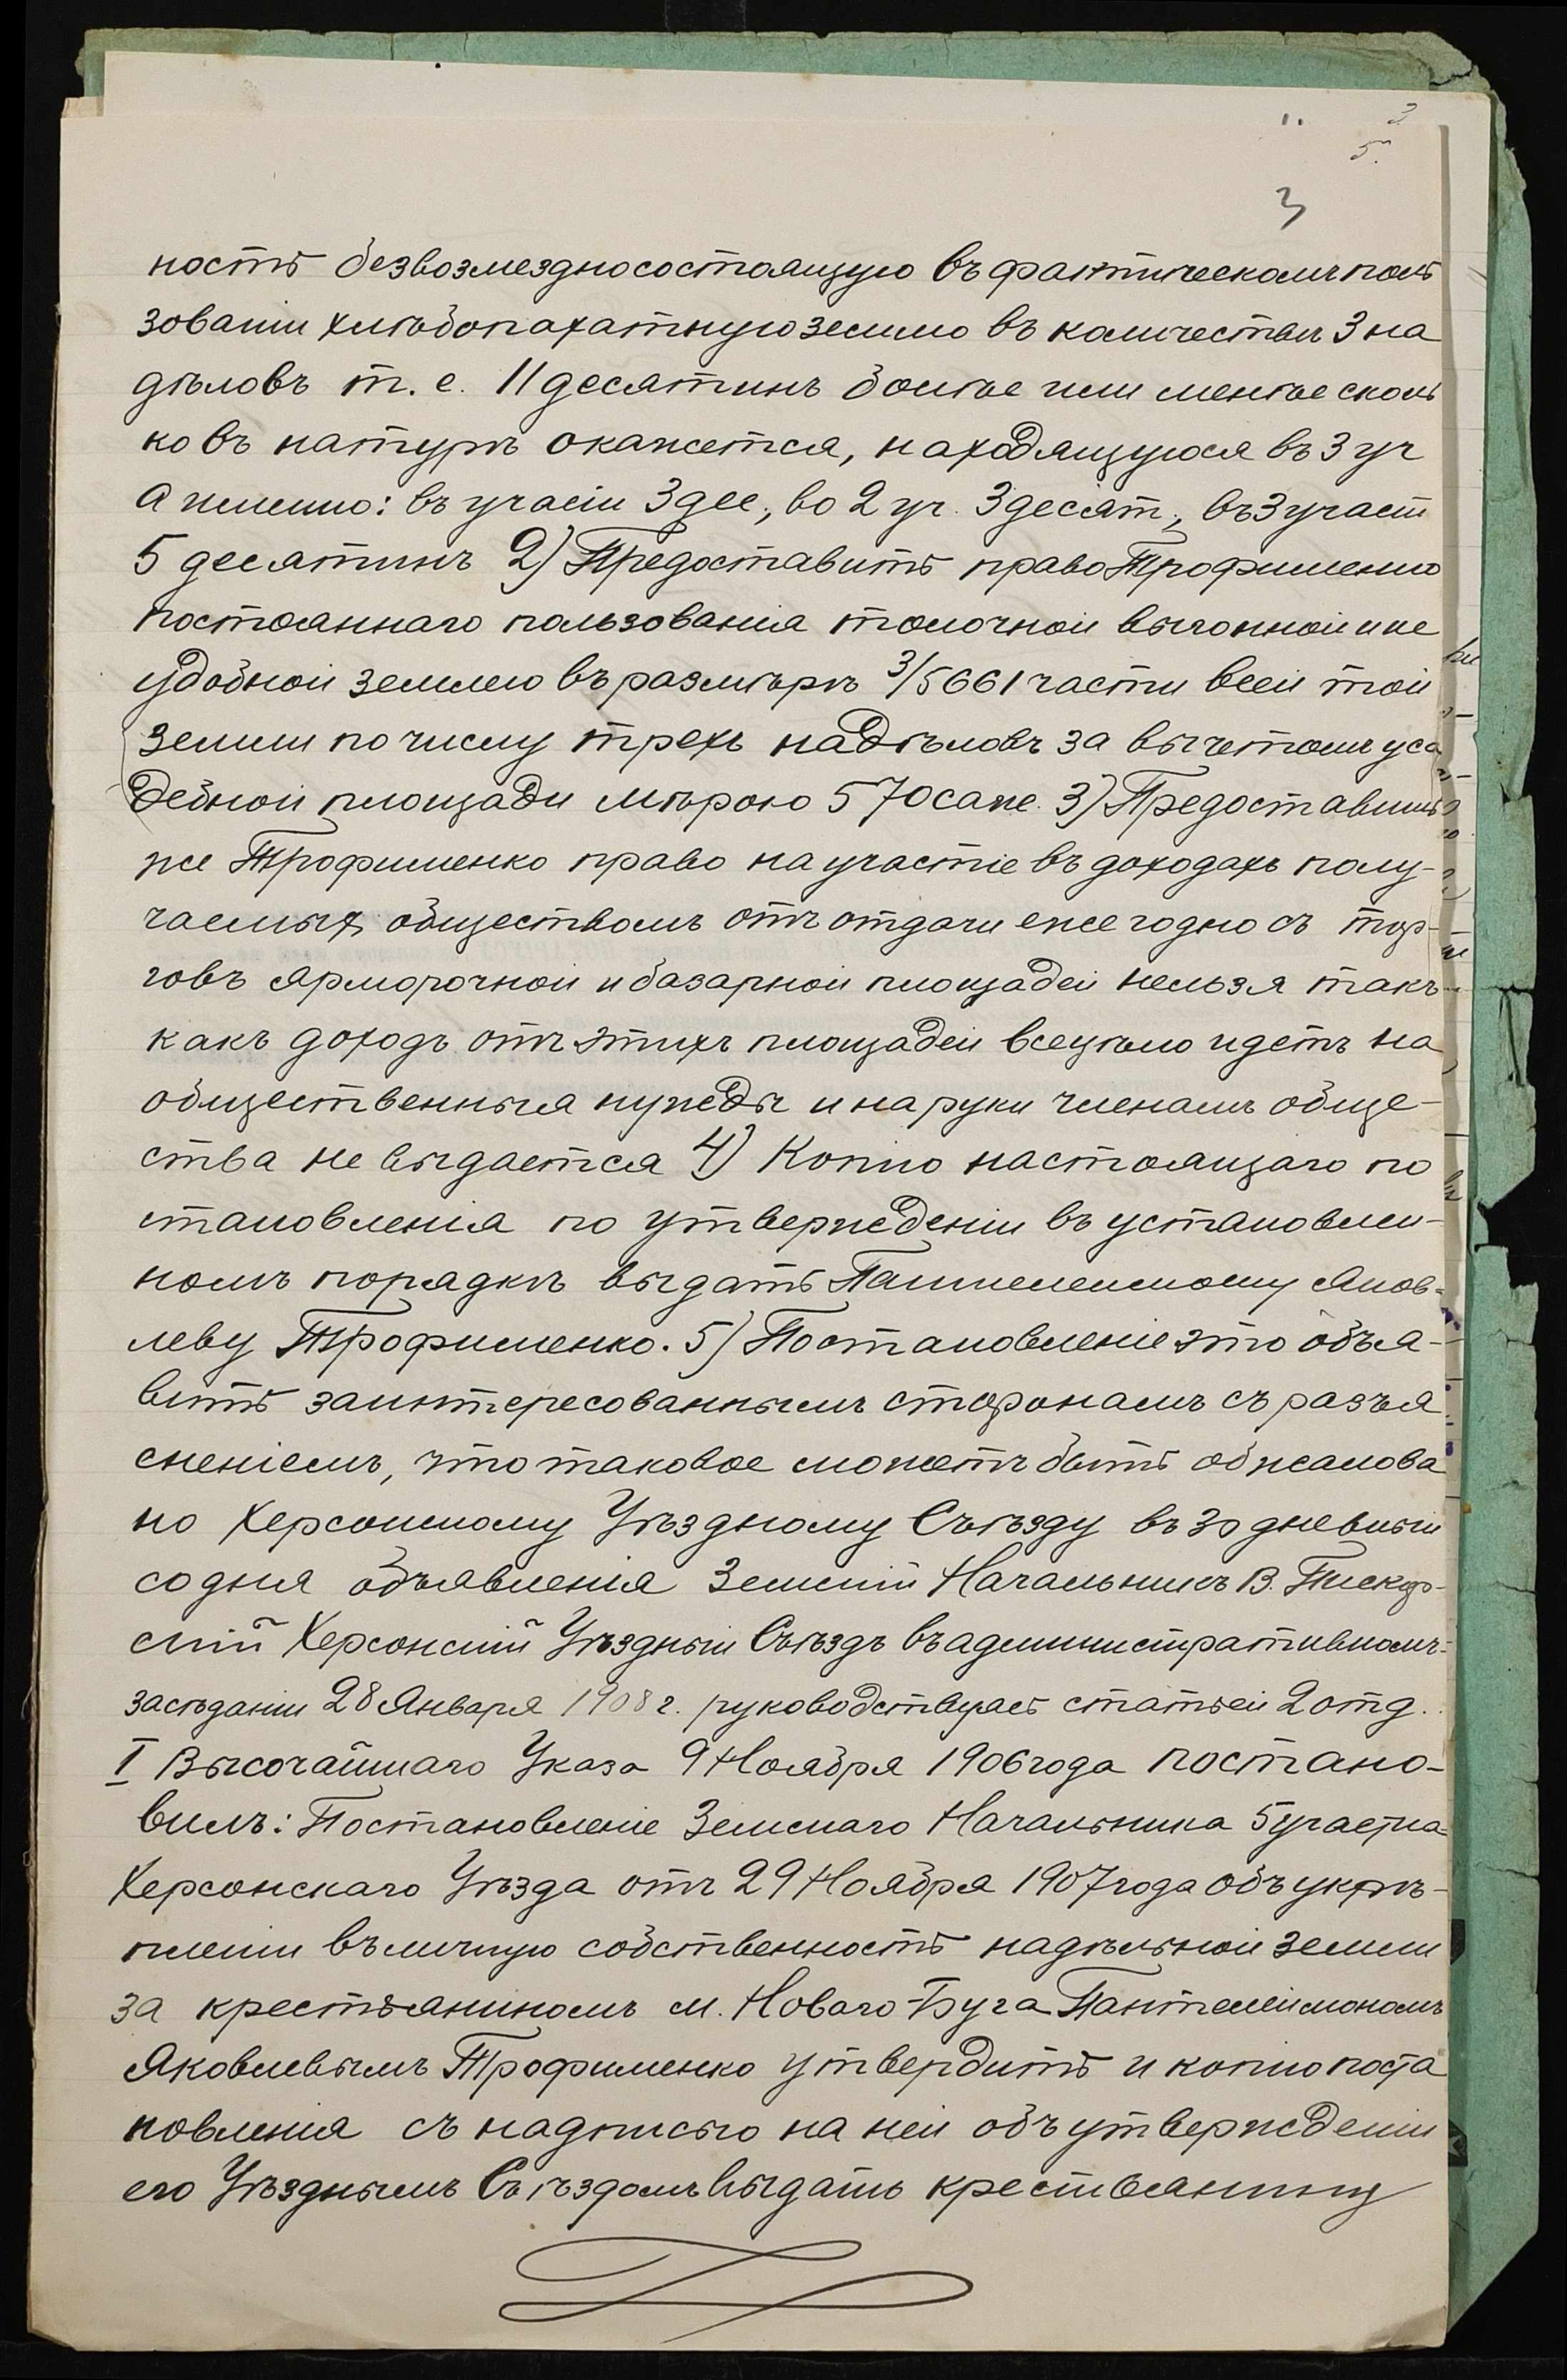 3
5.
3
ность безвозмездно состоящую въ фактическомъ поль
зованіи хлѣбопахатную землю въ количествѣ 3 на
дѣловъ т. е. 11 десятинъ болѣе или менѣе сколь
ко въ натурѣ окажется, находящуюся въ 3 уч
а именно: въ участіи 3 дес., во 2 уч. 3 десят., въ 3 участи
5 десятинъ 2) Предоставить право Трофименко
постояннаго пользованія толочной выгонной и не
удобной землею въ размѣрѣ 3/5661 части всей той
земли по числу трехъ надѣловъ за вычетомъ уса
дебной площади мѣрою 570 саже. 3) Предоставить
же Трофименко право на участіе въ доходахъ полу-
чаемыхъ обществомъ отъ отдачи ежегодно съ тор-
говъ ярморочной и базарной площадей нельзя такъ
какъ доходъ отъ этихъ площадей всецѣло идетъ на
общественныя нужды и на руки членамъ обще-
ства не выдается 4) Копію настоящаго по
становленія по утвержденіи въ установлен-
номъ порядкѣ выдать Пантелеймону Яков-
леву Трофименко. 5) Постановленіе это объя-
вить заинтересованнымъ сторонамъ съ разъя
сненіемъ, что таковое можетъ быть обжалова
но Херсонскому Уѣздному Съѣзду въ 30 дневный
со дня объявленія Земскій Начальникъ В. Пискор-
скій Херсонскій Уѣздный Съѣздъ въ административномъ
засѣданіи 28 Января 1908 г. руководствуясь статьей 2 отд.
I Высочайшаго Указа 9 Ноября 1906 года постано-
вилъ: Постановленіе Земскаго Начальника 5 участка
Херсонскаго Уѣзда отъ 29 Ноября 1907 года объ укрѣ-
пленіи въ личную собственность надѣльной земли
за крестьяниномъ м. Новаго-Буга Пантелеймономъ
Яковлевымъ Трофименко утвердить и копію поста
новленія съ надписью на ней объ утвержденіи
его Уѣзднымъ Съѣздомъ выдать крестьянину